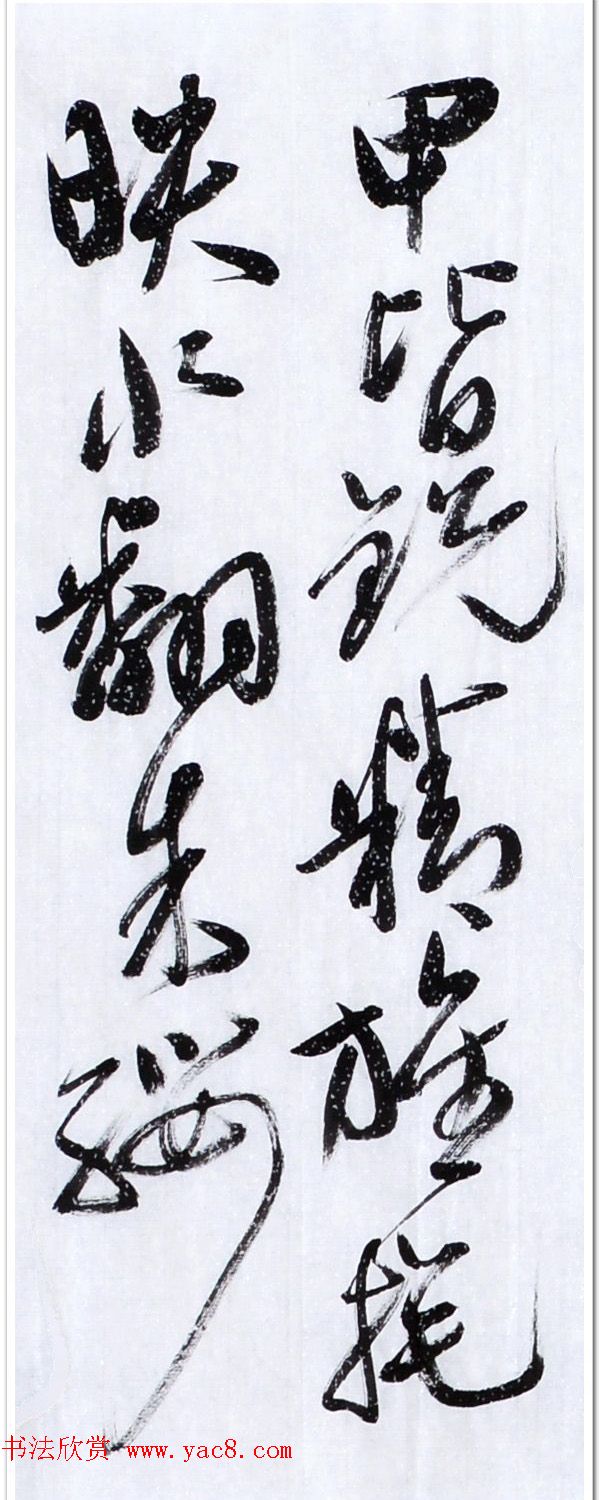 甲皆銳精旌旄
映水翻朱纓
书法欣赏 www.yac8.com